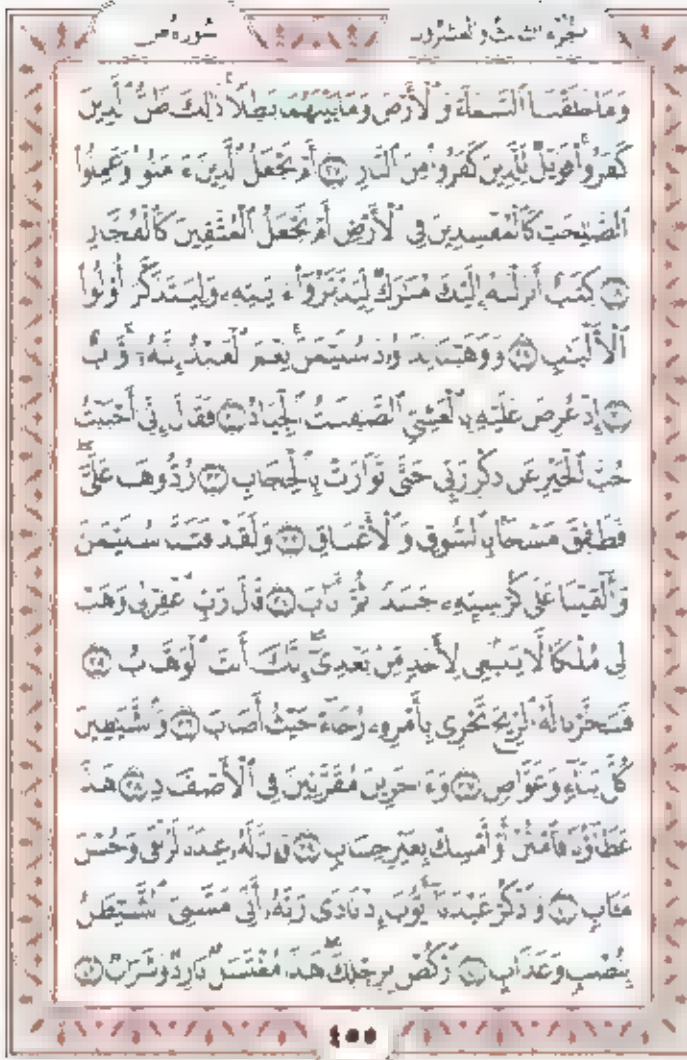 الجزء الثالث والعشرون سورة ص
وَمَا خَلَقْنَا ٱلسَّمَآءَ وَٱلْأَرْضَ وَمَا بَيْنَهُمَا بَٰطِلًا ذَٰلِكَ ظَنُّ ٱلَّذِينَ
كَفَرُوا۟ فَوَيْلٌ لِّلَّذِينَ كَفَرُوا۟ مِنَ ٱلنَّارِ ٢٧ أَمْ نَجْعَلُ ٱلَّذِينَ ءَامَنُوا۟ وَعَمِلُوا۟
ٱلصَّٰلِحَٰتِ كَٱلْمُفْسِدِينَ فِى ٱلْأَرْضِ أَمْ نَجْعَلُ ٱلْمُتَّقِينَ كَٱلْفُجَّارِ
٢٨ كِتَٰبٌ أَنزَلْنَٰهُ إِلَيْكَ مُبَٰرَكٌ لِّيَدَّبَّرُوٓا۟ ءَايَٰتِهِۦ وَلِيَتَذَكَّرَ أُو۟لُوا۟
ٱلْأَلْبَٰبِ ٢٩ وَوَهَبْنَا لِدَاوُۥدَ سُلَيْمَٰنَ نِعْمَ ٱلْعَبْدُ إِنَّهُۥٓ أَوَّابٌ
٣٠ إِذْ عُرِضَ عَلَيْهِ بِٱلْعَشِىِّ ٱلصَّٰفِنَٰتُ ٱلْجِيَادُ ٣١ فَقَالَ إِنِّىٓ أَحْبَبْتُ
حُبَّ ٱلْخَيْرِ عَن ذِكْرِ رَبِّى حَتَّىٰ تَوَارَتْ بِٱلْحِجَابِ ٣٢ رُدُّوهَا عَلَىَّ
فَطَفِقَ مَسْحًۢا بِٱلسُّوقِ وَٱلْأَعْنَاقِ ٣٣ وَلَقَدْ فَتَنَّا سُلَيْمَٰنَ
وَأَلْقَيْنَا عَلَىٰ كُرْسِيِّهِۦ جَسَدًا ثُمَّ أَنَابَ ٣٤ قَالَ رَبِّ ٱغْفِرْ لِى وَهَبْ
لِى مُلْكًا لَّا يَنۢبَغِى لِأَحَدٍ مِّنۢ بَعْدِىٓ إِنَّكَ أَنتَ ٱلْوَهَّابُ ٣٥
فَسَخَّرْنَا لَهُ ٱلرِّيحَ تَجْرِى بِأَمْرِهِۦ رُخَآءً حَيْثُ أَصَابَ ٣٦ وَٱلشَّيَٰطِينَ
كُلَّ بَنَّآءٍ وَغَوَّاصٍ ٣٧ وَءَاخَرِينَ مُقَرَّنِينَ فِى ٱلْأَصْفَادِ ٣٨ هَٰذَا
عَطَآؤُنَا فَٱمْنُنْ أَوْ أَمْسِكْ بِغَيْرِ حِسَابٍ ٣٩ وَإِنَّ لَهُۥ عِندَنَا لَزُلْفَىٰ وَحُسْنَ
مَـَٔابٍ ٤٠ وَٱذْكُرْ عَبْدَنَآ أَيُّوبَ إِذْ نَادَىٰ رَبَّهُۥٓ أَنِّى مَسَّنِىَ ٱلشَّيْطَٰنُ
بِنُصْبٍ وَعَذَابٍ ٤١ ٱرْكُضْ بِرِجْلِكَ هَٰذَا مُغْتَسَلٌۢ بَارِدٌ وَشَرَابٌ ٤٢
٤٥٥